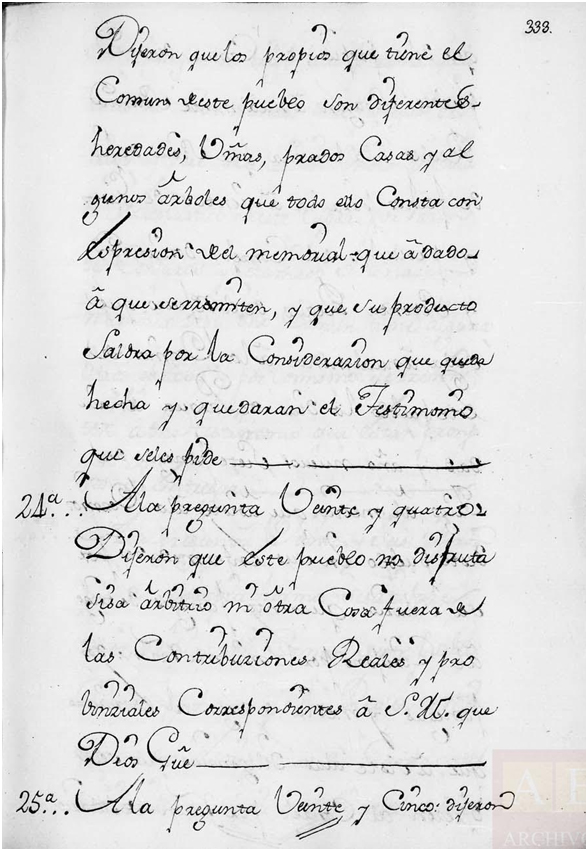 333.
Dijeron que los propios que tiene el
Comun de este pueblo son diferentes
heredades, Viñas, prados Casas y al
gunos árboles que todo ello Consta con
Espresion del memorial que á dado
á que se rremiten, y que su producto
Saldra por la Considerazion que queda
hecha y quedaran el Testimonio
que seles pide
24ª.. Ala pregunta Veinte y quatro
Dijeron que este pueblo no disfruta
sisa árbitrio ni ótra Cosa fuera de
las Contribuziones Reales y pro
vinziales Correspondientes á S. M. que
Dios Gûe
25ª... Ala pregunta Veinte y Cinco: dijeron
ARCHIVO